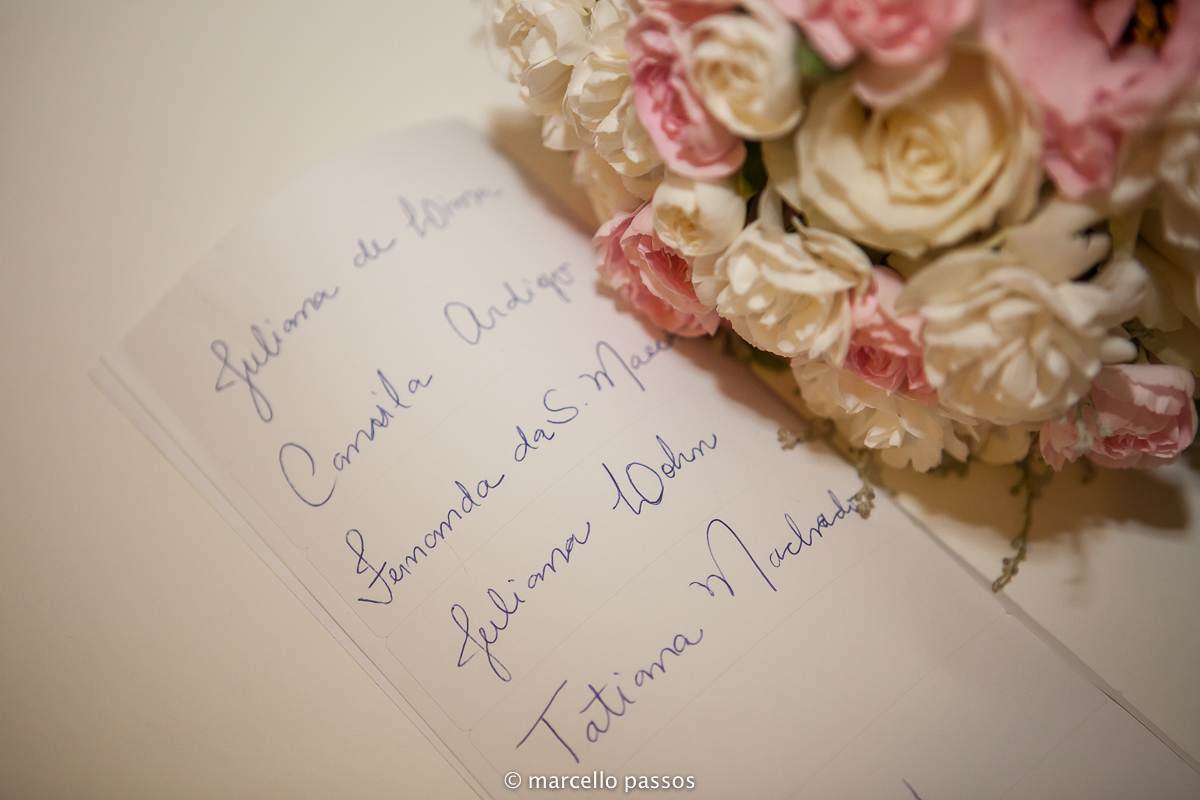 Juliana de
Camila Ardigo
Fernanda da S.
Juliana Wohn
Tatiana Machado
© marcello passos